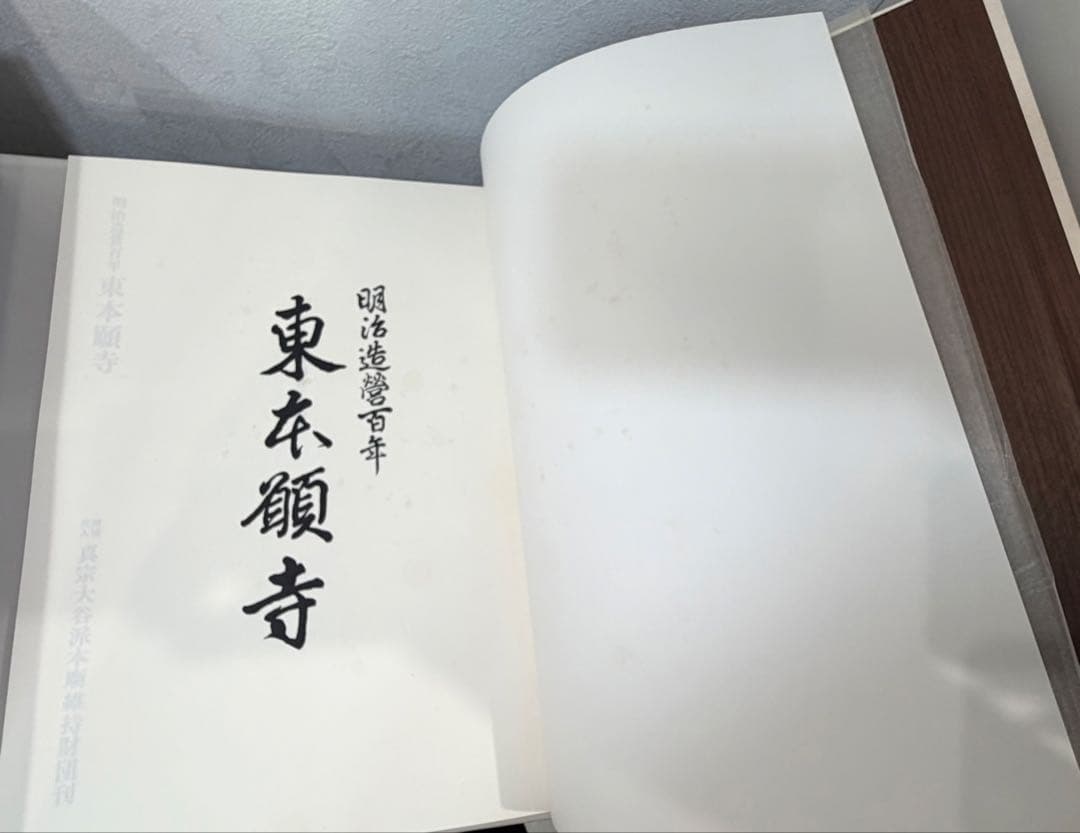 明治造營百年
東本願寺
明治造営百年 東本願寺
財団法人 真宗大谷派本廟維持財団刊